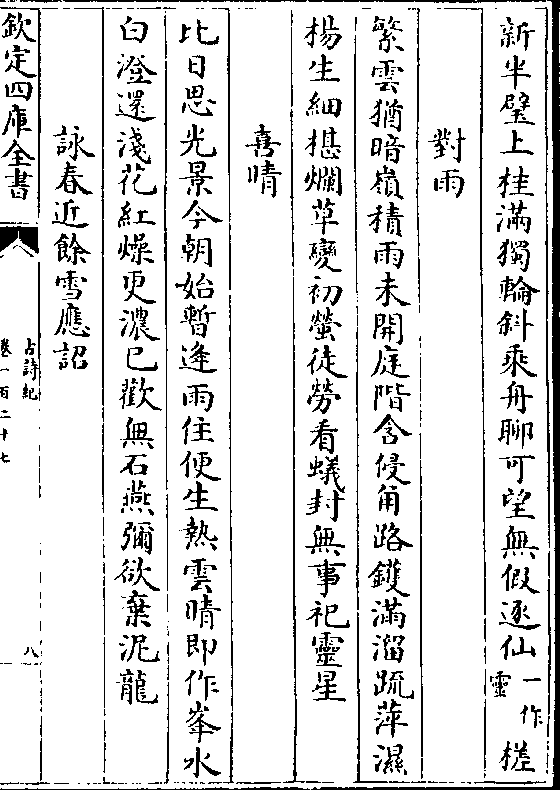 新半璧上桂滿獨輪斜乘舟聊可望無假逐仙一作靈槎
對雨
繁雲猶暗嶺積雨未開庭階含侵角路鑊滿溜疏萍濕
楊生細椹爛草變初螢徒勞看蟻封無事祀靈星
喜晴
比日思光景今朝始暫逢雨住便生熱雲晴即作峯水
白澄還淺花紅燥更濃已歡無石燕彌欲棄泥龍
詠春近餘雪應詔
欽定四庫全書
古詩紀
卷一百二十七
八